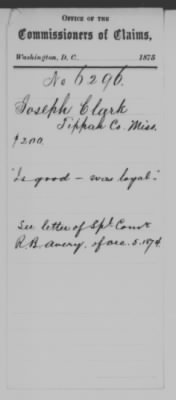 OFFICE OF THE
Commissioners of Claims,
Washington, D. C., 1875
No 6296.
Joseph Clark
Tippah Co. Miss.
$200.
"Is good – was loyal."
See letter of Spl. Comr
R. B. Avery, of Dec. 5. 1874.